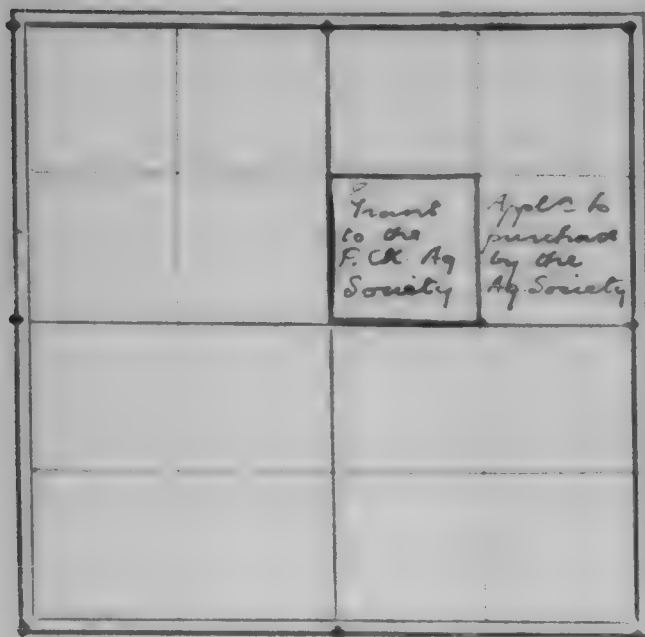 Grant
to the
F. Ck. Ag
Society
Appl<sup>n</sup> to
purchase
by the
Ag. Society